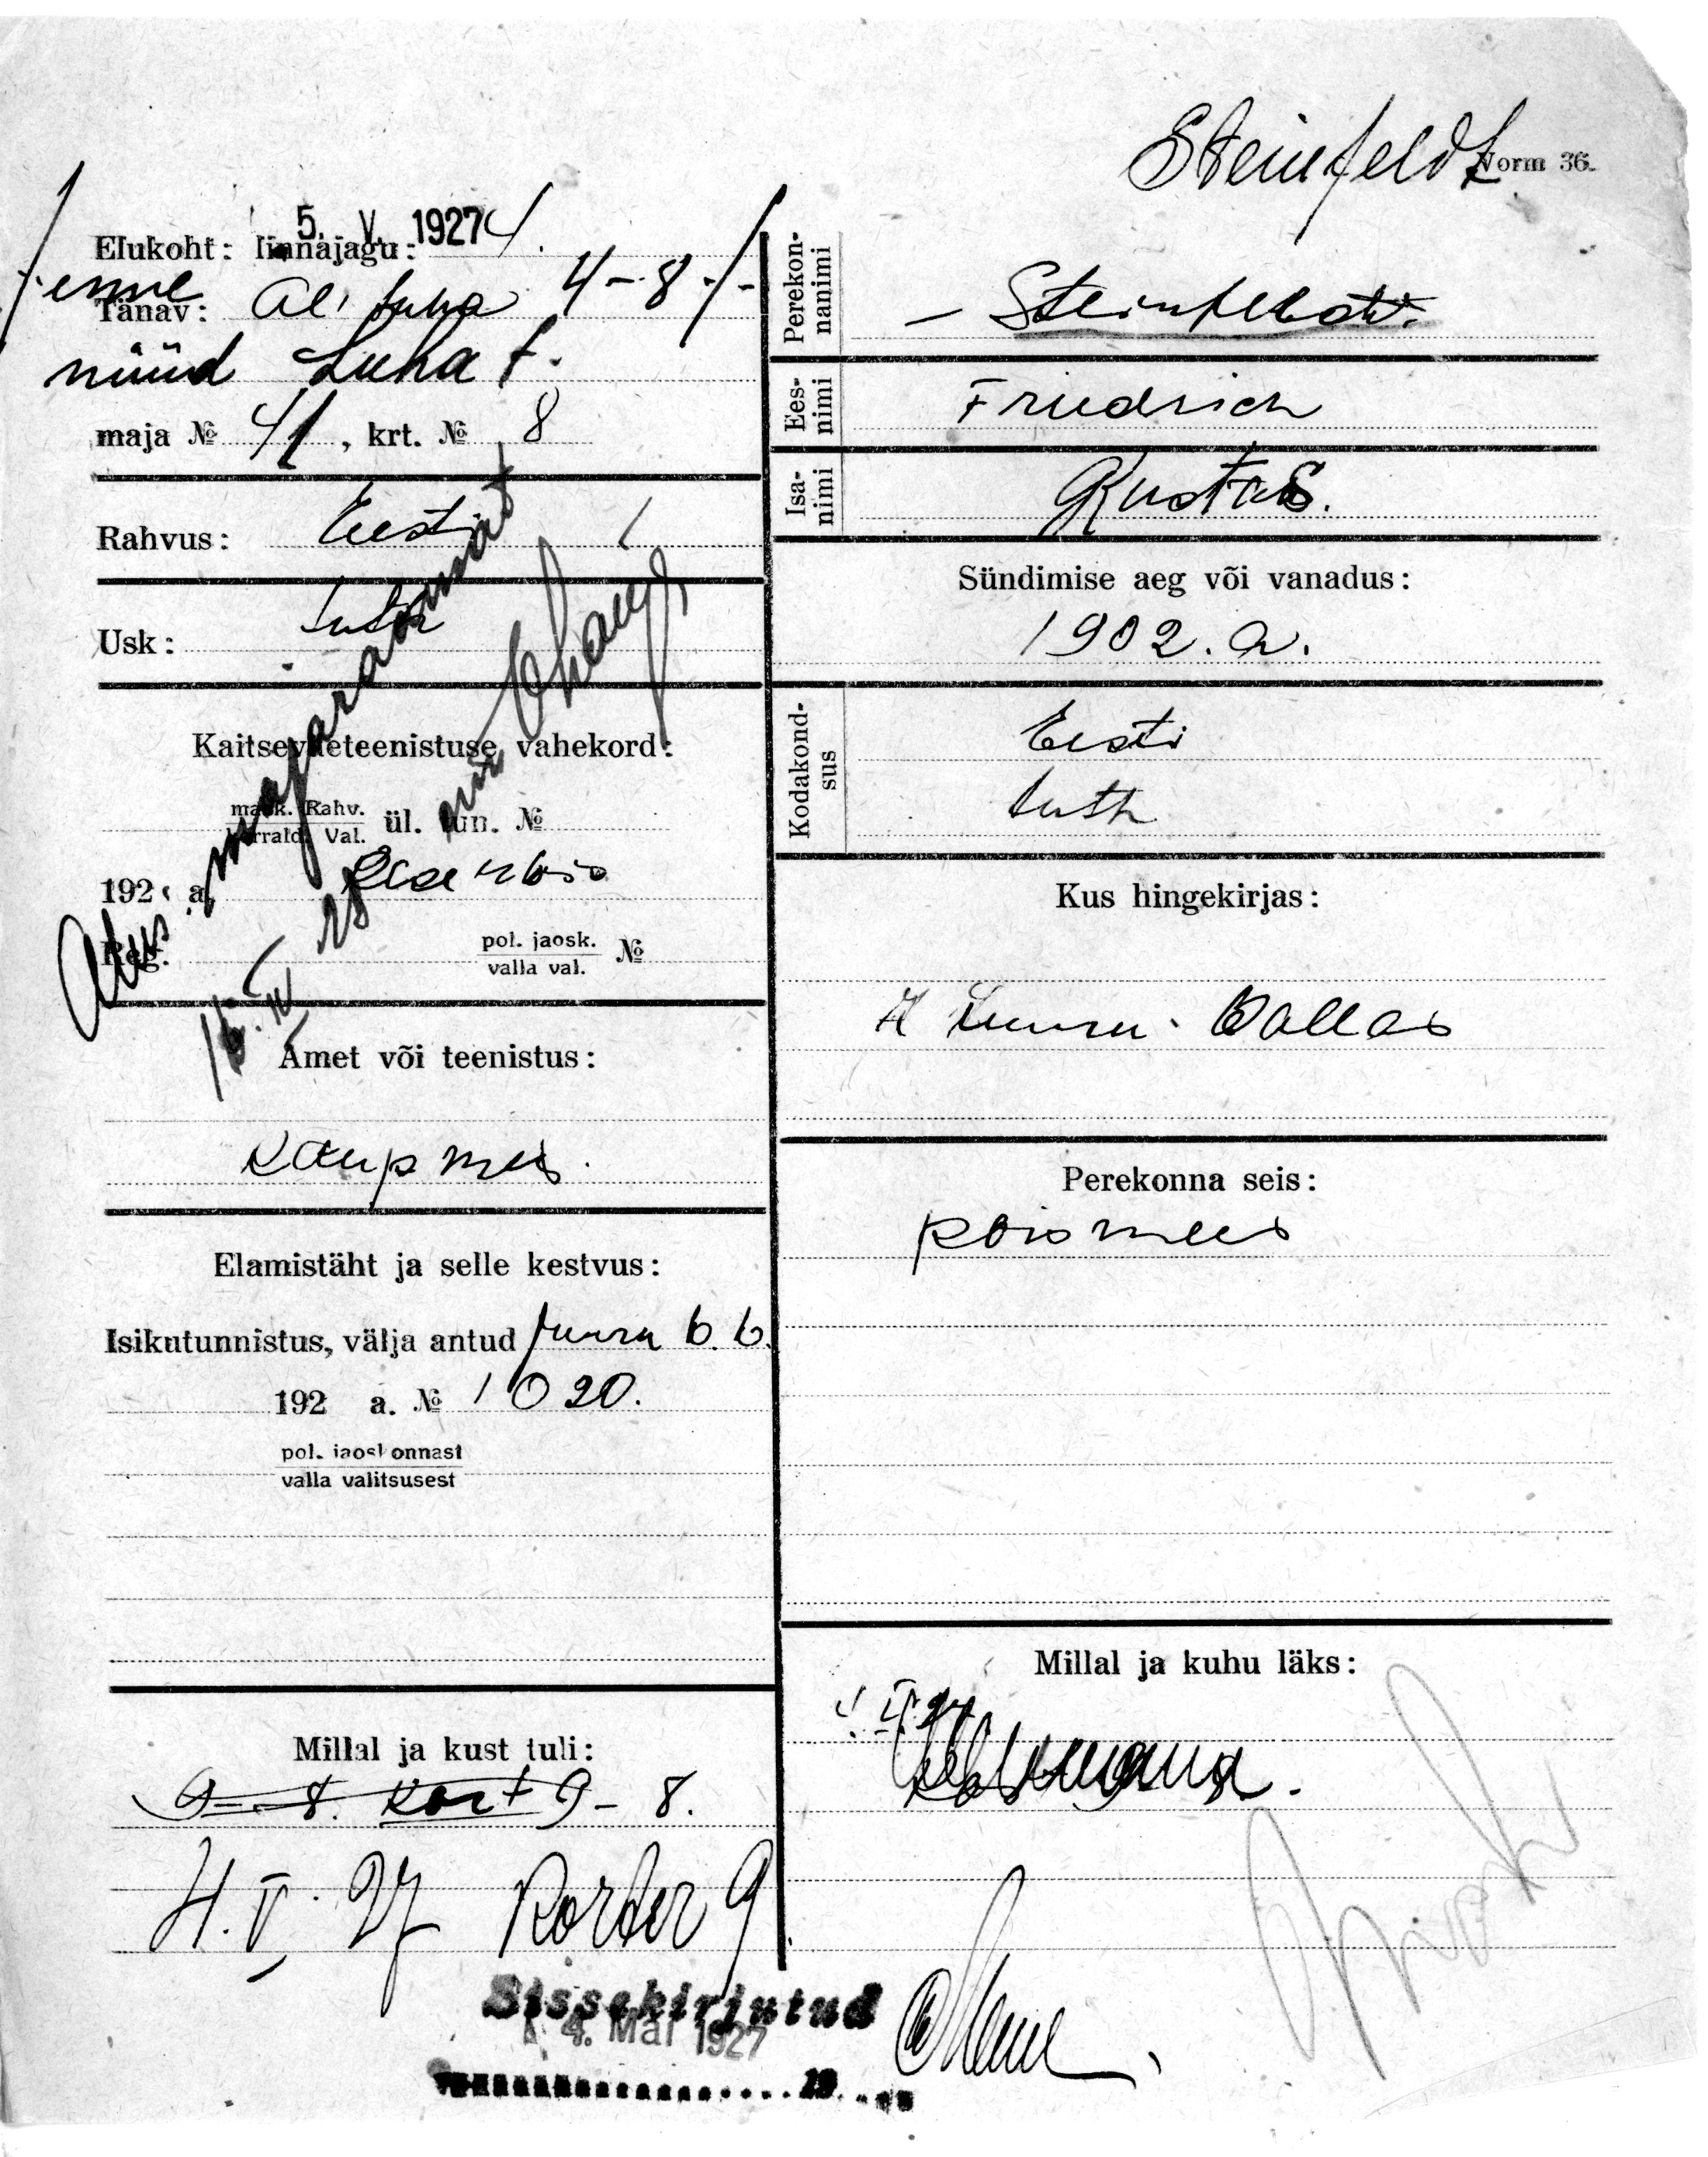 Steinfeldt
Norm 36.
5. V. 1927
Elukoht: linnajagu: 4.
enne
Tänav: 4-8
nüüd Luha t.
maja № 41, krt. № 8
Rahvus: Eesti
Usk: Luth
Kaitseväeteenistuse vahekord:
Rahv.
Val. ül. tun. №
192 a.
Reg. pol. jaosk. №
valla val.
Alus: majaraamat
16. IV 28
Amet või teenistus:
Kaupmes.
Elamistäht ja selle kestvus:
Isikutunnistus, välja antud Juuru
192 a. № 1020.
pol. jaoskonnast
valla valitsusest
Millal ja kust tuli:
9-8. Kort 9-8.
4. V. 27 Korter 9.
Perekon-
nanimi
Steinfeldt.
Ees-
nimi
Friedrich
Isa-
nimi
Kustas.
Sündimise aeg või vanadus:
1902. a.
Kodakond-
sus
Eesti
Luth
Kus hingekirjas:
Juuru Vallas
Perekonna seis:
poismees
Millal ja kuhu läks:
Sissekirjutud
4. Mai 1927
19